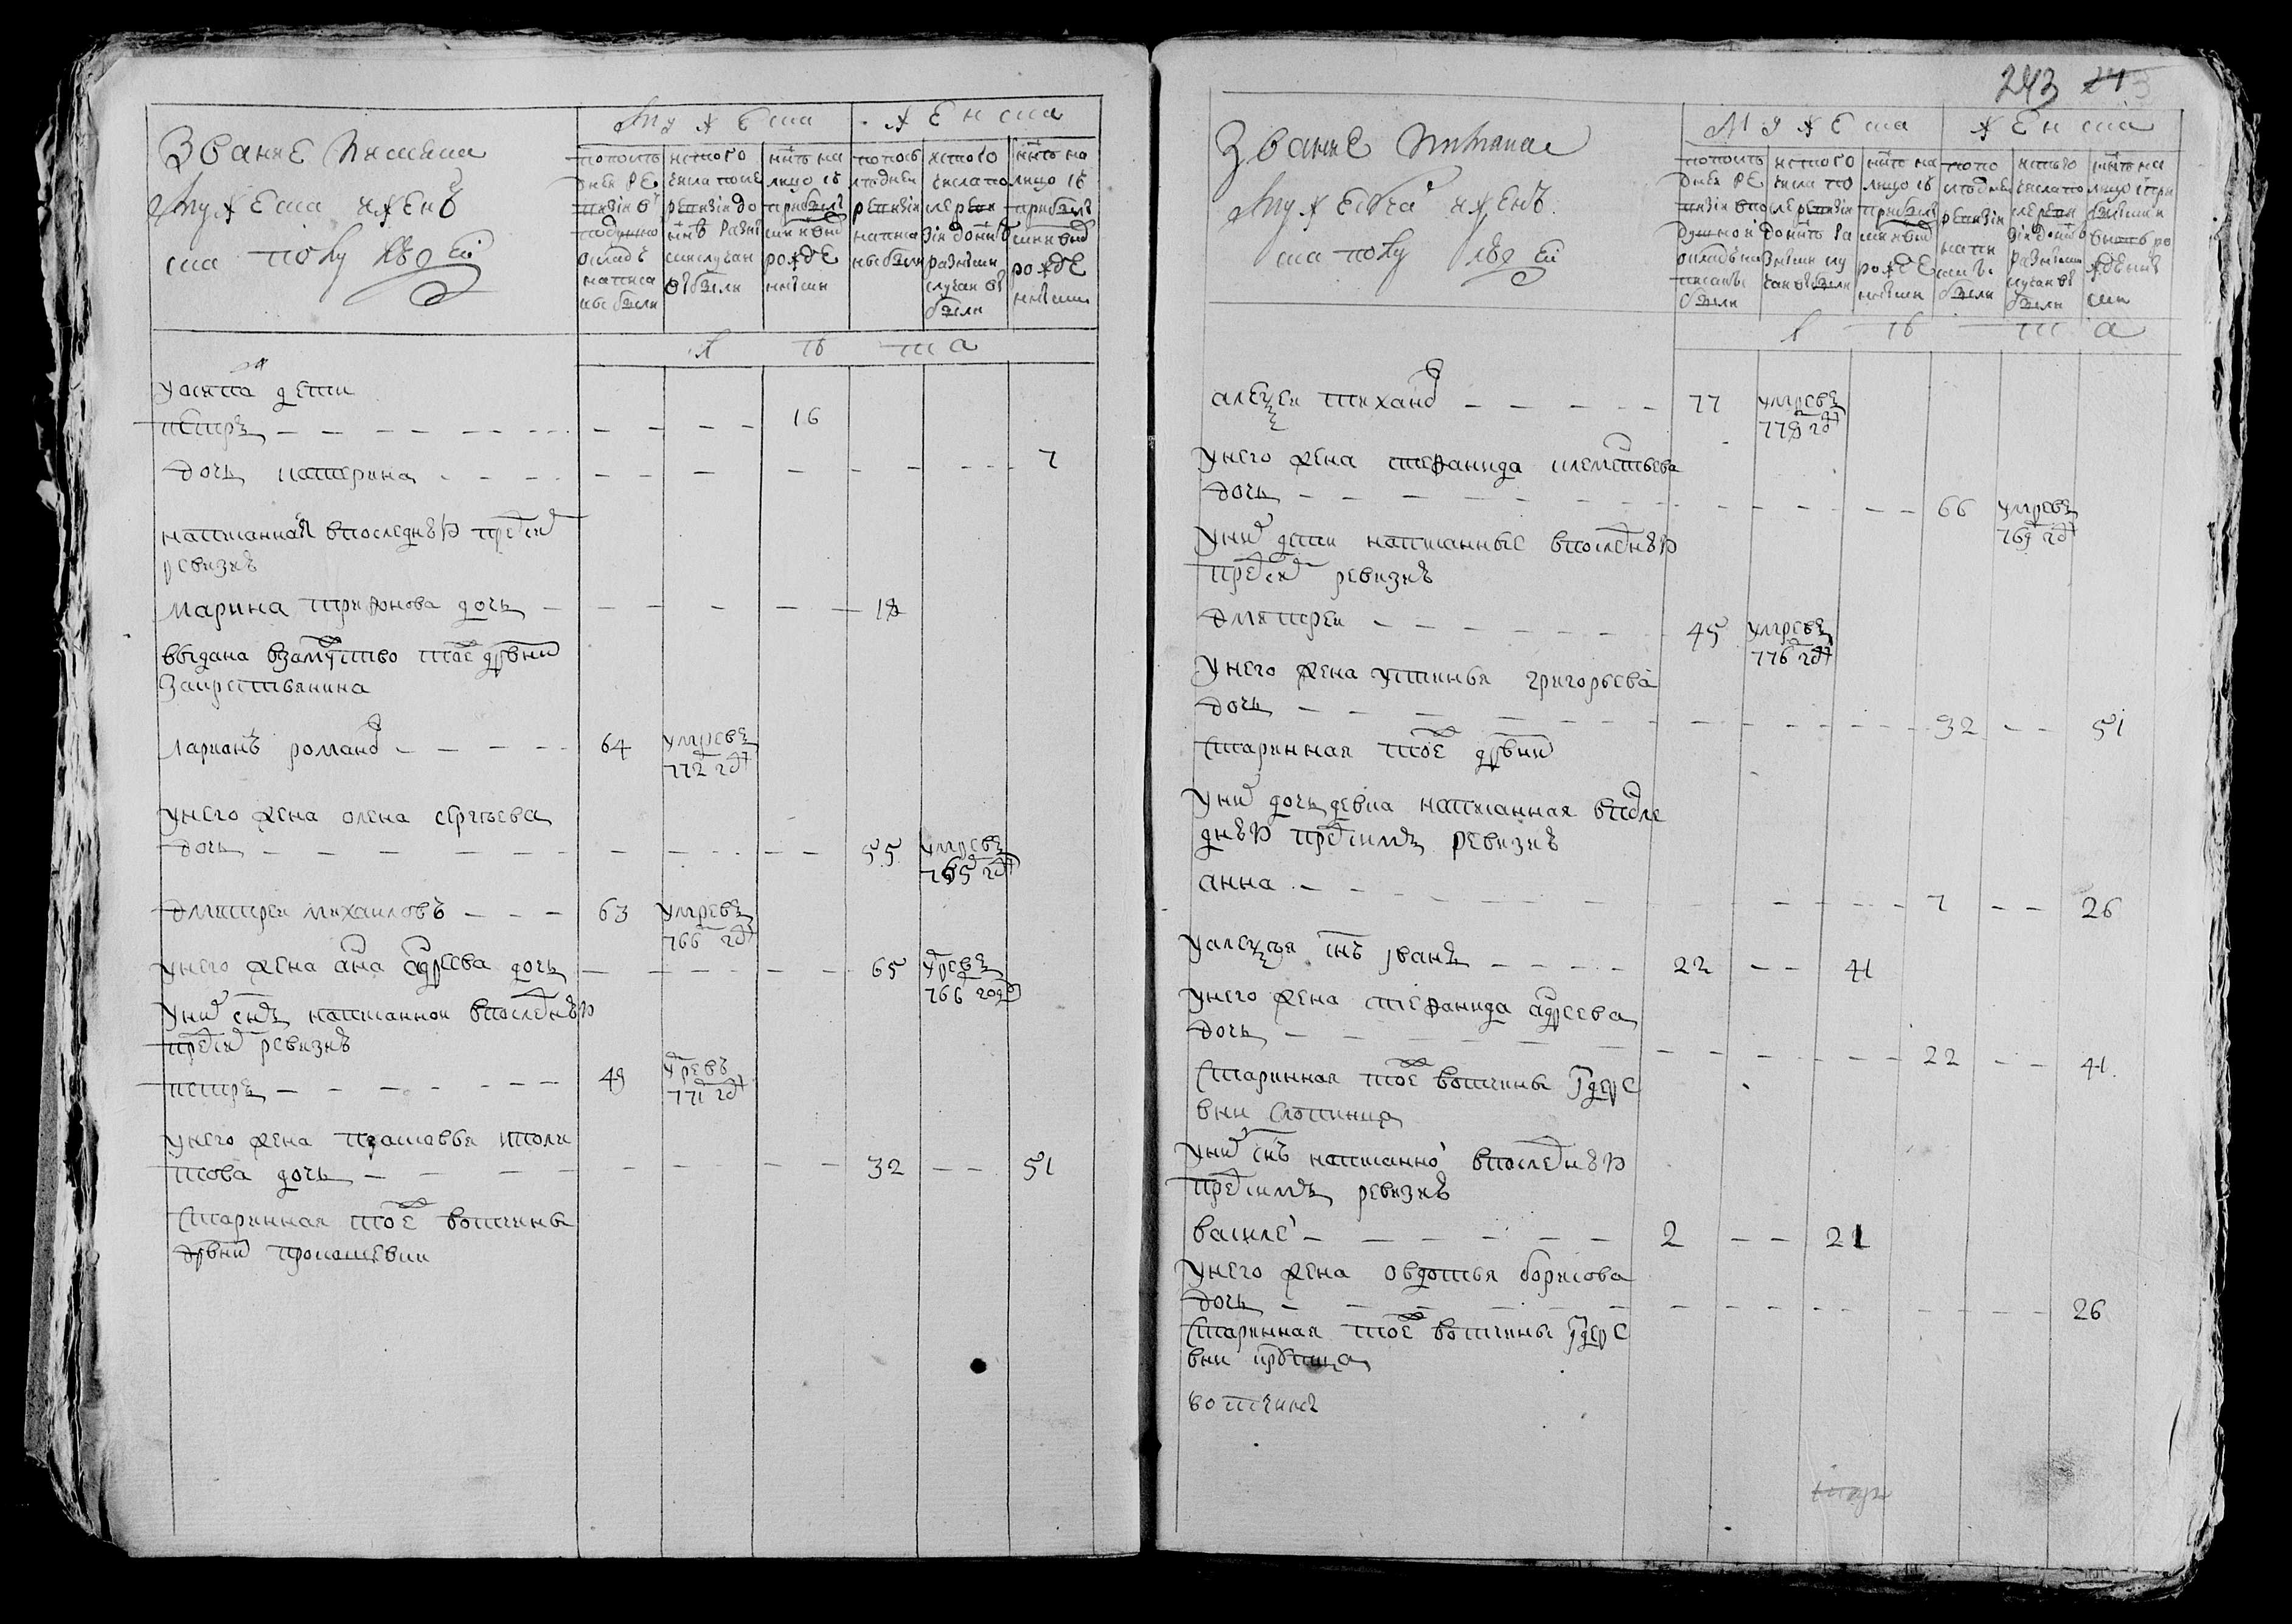 Звание
Мужеска и женъ
ска полу людеи
Мужеска
Женска
по последнеи ревизии в подушно окладъ написаны были
ис того числа после ревизии до нынѣ разными случаи выбыли
нынѣ на лицо съ прибылыми и вновь рожденными
по последнеи ревизии написаны были
ис того числа после ревизии до нынѣ разными случаи выбыли
нынѣ на лицо съ прибылыми и вновь рожденными
лѣта
у осипа дети
петръ 16
дочь катерина 7
написанная в последнѣй пред сим
ревизиѣ
марина трифонова дочь 18
выдана в замужство тое дрвни
за крестьянина
ларионъ романов 64 умре въ 772 году
у него жена олена сергѣева
дочь 55 умре въ 765 году
дмитреи михаиловъ 63 умре въ 766 году
у него жена анна андреева дочь 65 умре въ 766 году
у них снъ написаннои в последнѣй
пред сим ревизиѣ
петръ 49 умре въ 771 году
у него жена прасковья иполи
това дочь 32 51
старинная тое вотчины
дрвни
243
Звание
Мужеска и женъ
ска полу людеи
Мужеска
Женска
по последнеи ревизии в подушнои окладъ написаны были
ис того числа по сле ревизии до нынѣ разными случаи выбыли
нынѣ на лицо съ прибылыми и вновь рожденными
по последнеи ревизии написаны были
ис того числа после ревизии до нынѣ разными случаи выбыли
нынѣ на лицо с прибылыми и вновь рожденными
лѣта
алексеи тиханов 77 умре въ 778 году
у него жена стефанида клементьева
дочь 66 умре въ 769 году
у них дети написанные в последнѣй
пред сим ревизиѣ
дмитреи 45 умре въ 776 году
у него жена устинья григорьева
дочь 32 51
старинная тое дрвни
у них дочь девка написанная в после
днѣй пред симъ ревизиѣ
анна 7 26
у алексѣя снъ иванъ 22 41
у него жена стефанида андреева
дочь 22 41
старинная тое вотчины из дере
вни
у них снъ написанно в последнѣй
пред симъ ревизиѣ
василе 2 21
у него жена овдотья борисова
дочь 26
старинная тое вотчины из дере
вни
вотчинѣ